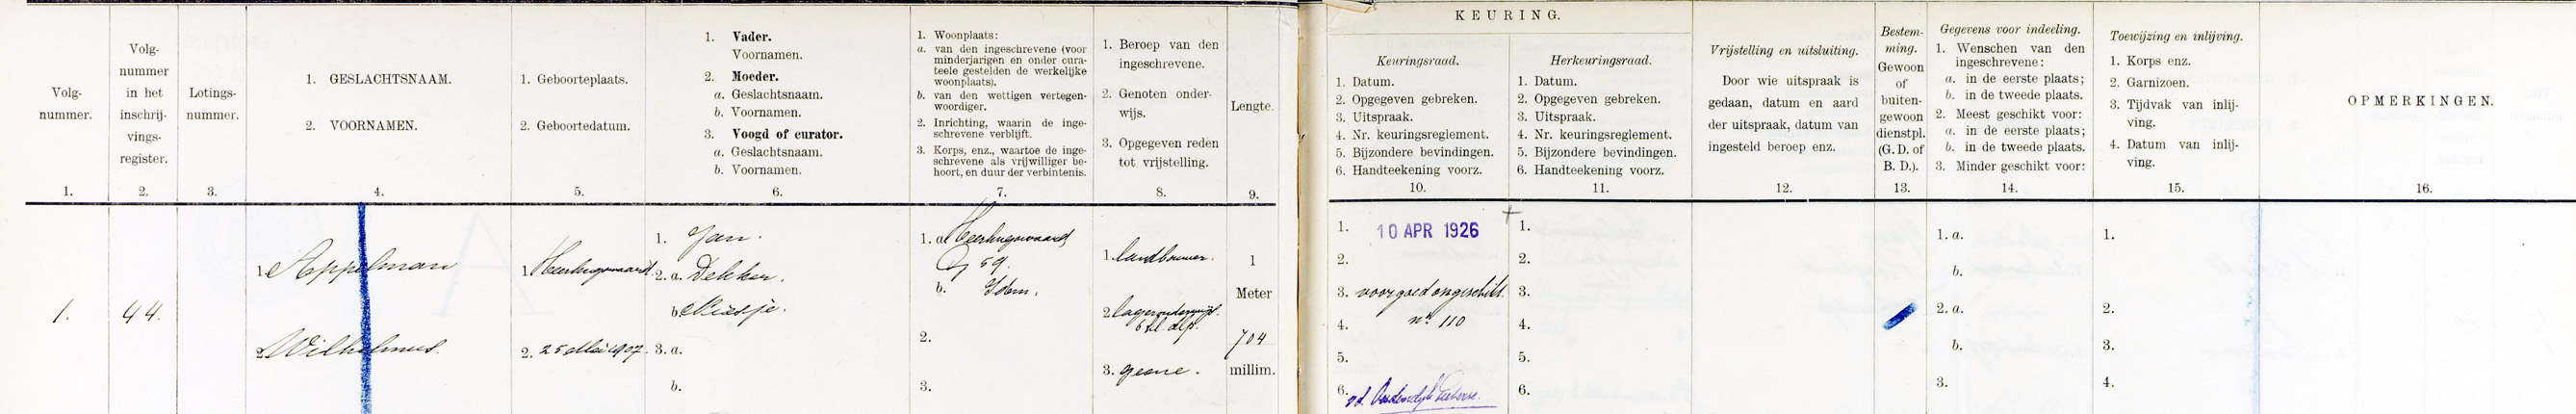 KEURING.
Volg-
nummer.
1.
Volg-
nummer
in het
inschrij-
vings-
register.
2.
Lotings-
nummer.
3.
1. GESLACHTSNAAM.
2. VOORNAMEN.
4.
1. Geboorteplaats.
2. Geboortedatum.
5.
1. Vader.
Voornamen.
2. Moeder.
a. Geslachtsnaam.
b. Voornamen.
3. Voogd of curator.
a. Geslachtsnaam.
b. Voornamen.
6.
1. Woonplaats:
a. van den ingeschrevene (voor
minderjarigen en onder cura-
teele gestelden de werkelijke
woonplaats).
b. van den wettigen vertegen-
woordiger.
2. Inrichting, waarin de inge-
schrevene verblijft.
3. Korps, enz., waartoe de inge-
schrevene als vrijwilliger be-
hoort, en duur der verbintenis.
7.
1. Beroep van den
ingeschrevene.
2. Genoten onder-
wijs.
3. Opgegeven reden
tot vrijstelling.
8.
Lengte.
9.
Keuringsraad.
1. Datum.
2. Opgegeven gebreken.
3. Uitspraak.
4. Nr. keuringsreglement.
5. Bijzondere bevindingen.
6. Handteekening voorz.
10.
Herkeuringsraad.
1. Datum.
2. Opgegeven gebreken.
3. Uitspraak.
4. Nr. keuringsreglement.
5. Bijzondere bevindingen.
6. Handteekening voorz.
11.
Vrijstelling en uitsluiting.
Door wie uitspraak is
gedaan, datum en aard
der uitspraak, datum van
ingesteld beroep enz.
12.
Bestem-
ming.
Gewoon
of
buiten-
gewoon
dienstpl.
(G. D. of
B. D.).
13.
Gegevens voor indeeling.
1. Wenschen van den
ingeschrevene:
a. in de eerste plaats;
b. in de tweede plaats.
2. Meest geschikt voor:
a. in de eerste plaats;
b. in de tweede plaats.
3. Minder geschikt voor:
14.
Toewijzing en inlijving.
1. Korps enz.
2. Garnizoen.
3. Tijdvak van inlij-
ving.
4. Datum van inlij-
ving.
15.
OPMERKINGEN.
16.
1.
44.
1. Appelman
2. Wilhelmus.
1. Heerhugowaard
2. 25 Mei 1907.
1. Jan.
2. a. Dekker.
b.
3. a.
b.
1. a. Heerhugowaard
59.
b. Idem.
2.
3.
1. landbouwer.
2. lager onderwijs.
6
3. geene.
1
Meter
704
millim.
1. 10 APR 1926
2.
3. voorgoed ongeschikt.
4. nr. 110
5.
6.
1.
2.
3.
4.
5.
6.
1. a.
b.
2. a.
b.
3.
1.
2.
3.
4.